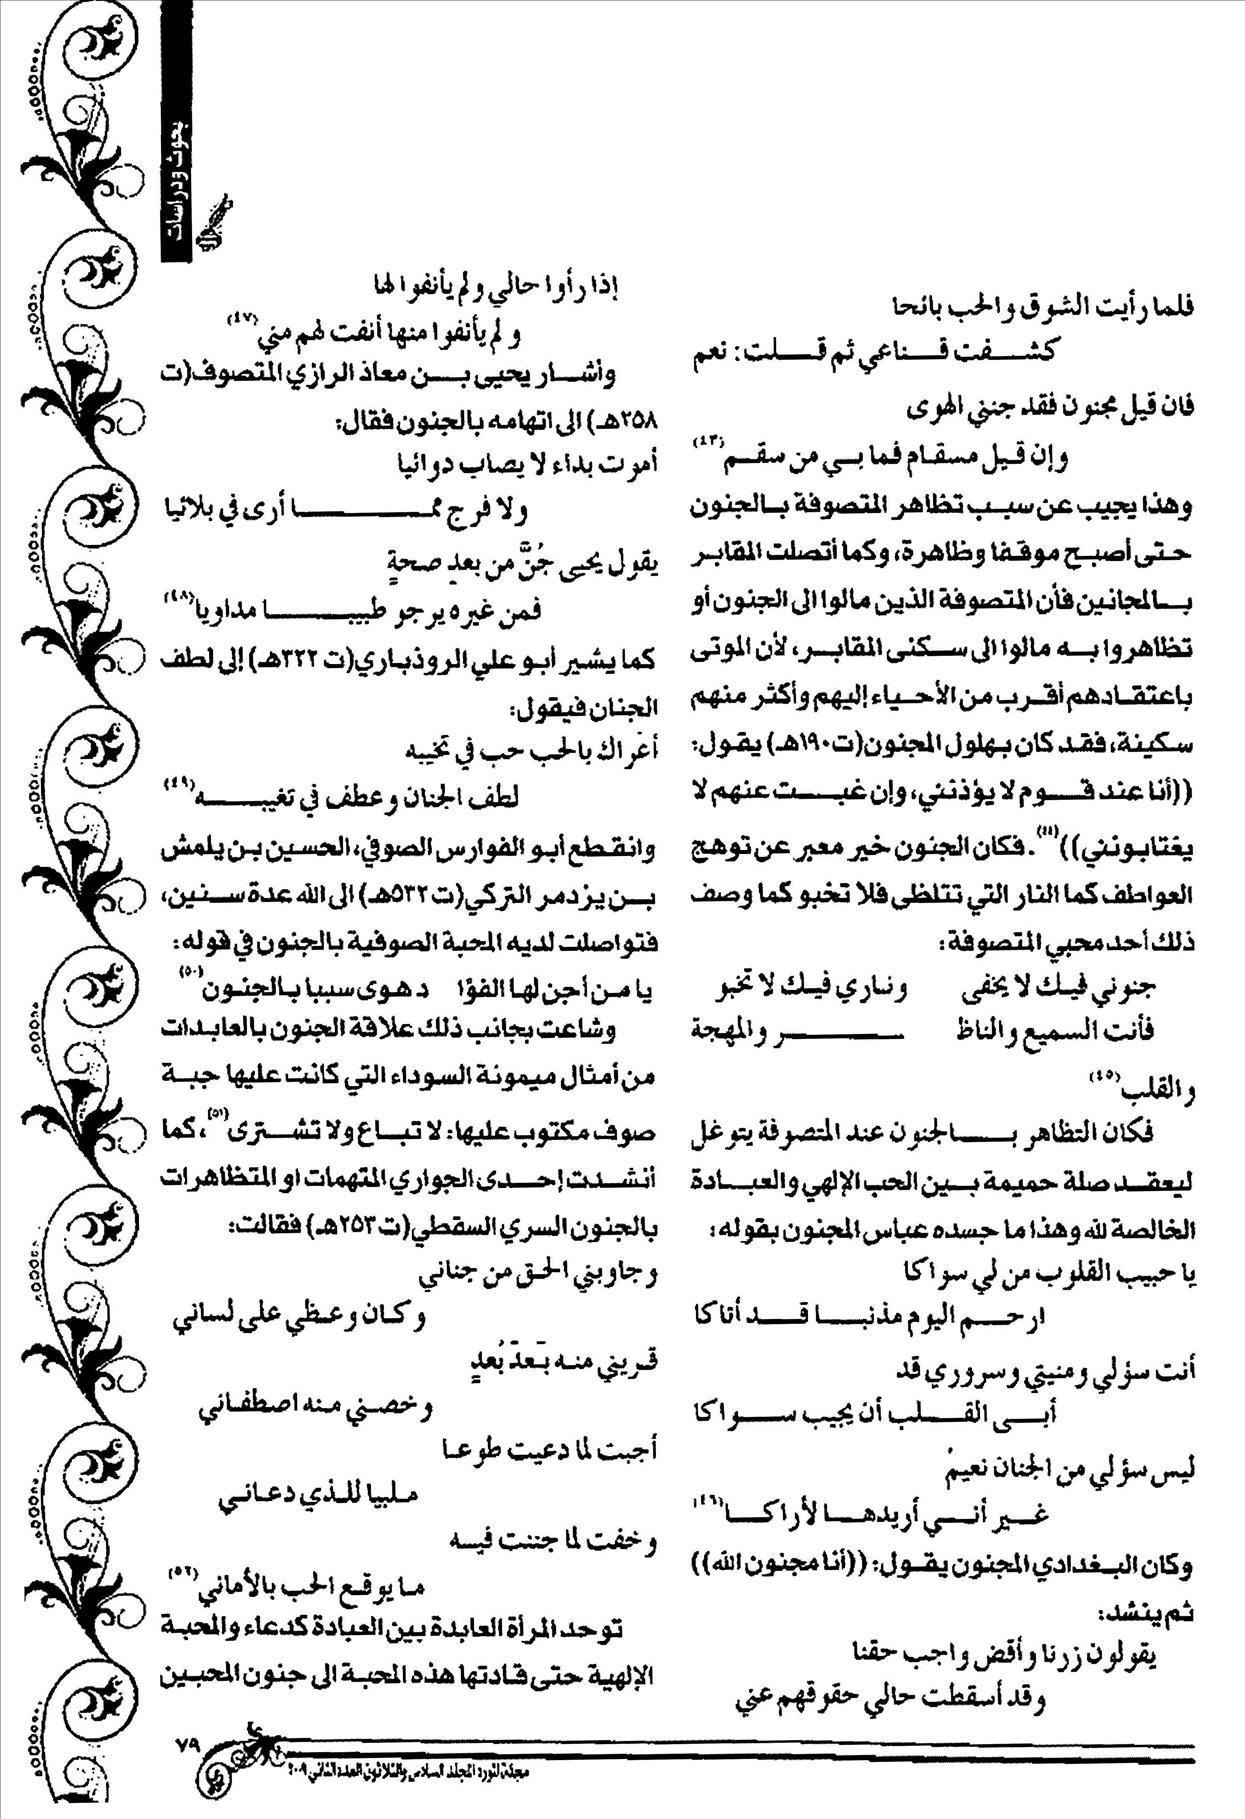 بحوث ودراسات
فلما رأيت الشوق والحب بائحا
كشفت قناعي ثم قلت: نعم
فان قيل مجنون فقد جنني الهوى
وإن قيل مسقام فما بي من سقم(٤٣)
وهذا يجيب عن سبب تظاهر المتصوفة بالجنون
حتى أصبح موقفا وظاهرة، وكما أتصلت المقابر
بالمجانين فأن المتصوفة الذين مالوا الى الجنون أو
تظاهروا به مالوا الى سكنى المقابر، لأن الموتى
باعتقادهم أقرب من الأحياء إليهم وأكثر منهم
سكينة، فقد كان بهلول المجنون(ت١٩٠هـ) يقول:
((أنا عند قوم لا يؤذنني، وإن غبت عنهم لا
يغتابونني))(٤٤). فكان الجنون خير معبر عن توهج
العواطف كما النار التي تتلظى فلا تخبو كما وصف
ذلك أحد محبي المتصوفة:
جنوني فيك لا يخفى وناري فيك لا تخبو
فأنت السميع والناظ ـر والمهجة
والقلب(٤٥)
فكان التظاهر بالجنون عند المتصوفة يتوغل
ليعقد صلة حميمة بين الحب الإلهي والعبادة
الخالصة لله وهذا ما جسده عباس المجنون بقوله:
يا حبيب القلوب من لي سواكا
ارحم اليوم مذنبا قد أتاكا
أنت سؤلي ومنيتي وسروري قد
أبى القلب أن يجيب سواكا
ليس سؤلي من الجنان نعيم
غير أني أريدها لأراكا(٤٦)
وكان البغدادي المجنون يقول: ((أنا مجنون الله))
ثم ينشد:
يقولون زرنا وأقض واجب حقنا
وقد أسقطت حالي حقوقهم عني
إذا رأوا حالي ولم يأنفوا لها
ولم يأنفوا منها أنفت لهم مني(٤٧)
وأشار يحيى بن معاذ الرازي المتصوف(ت
٢٥٨هـ) الى اتهامه بالجنون فقال:
أموت بداء لا يصاب دوائيا
ولا فرج مما أرى في بلائيا
يقول يحيى جُنَّ من بعدِ صحةٍ
فمن غيره يرجو طبيبا مداويا(٤٨)
كما يشير أبو علي الروذباري(ت ٣٢٢هـ) إلى لطف
الجنان فيقول:
أغراك بالحب حب في تخيبه
لطف الجنان وعطف في تغيبه(٤٩)
وانقطع أبو الفوارس الصوفي، الحسين بن يلمش
بن يزدمر التركي(ت ٥٣٢هـ) الى الله عدة سنين،
فتواصلت لديه المحبة الصوفية بالجنون في قوله:
يا من أجن لها الفؤا د هوى سببا بالجنون(٥٠)
وشاعت بجانب ذلك علاقة الجنون بالعابدات
من أمثال ميمونة السوداء التي كانت عليها جبة
صوف مكتوب عليها: لا تباع ولا تشترى(٥١)، كما
أنشدت إحدى الجواري المتهمات او المتظاهرات
بالجنون السري السقطي(ت ٢٥٣هـ) فقالت:
وجاوبني الحق من جناني
وكان وعظي على لساني
قربني منه بَعدَ بُعدٍ
وخصني منه اصطفاني
أجبت لما دعيت طوعا
ملبيا للذي دعاني
وخفت لما جننت فيه
ما يوقع الحب بالأماني(٥٢)
توحد المرأة العابدة بين العبادة كدعاء والمحبة
الإلهية حتى قادتها هذه المحبة الى جنون المحبين
٧٩
مجلة المورد المجلد السادس والثلاثون العدد الثاني ٢٠٠٩